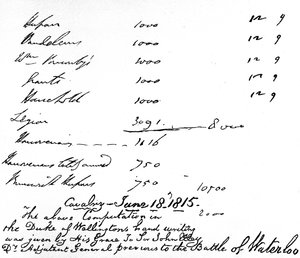 Hussars 1000 12 9
Vandeleurs 1000 12 9
Wm Ponsonby's 1000 12 9
Grants 1000 12 9
Household 1000 12 9
Legion 3091 8000
Hanoverians 1616
Hanoverians 750
Brunswick Hussars 750
10500
Cavalry - June 18th 1815. 2000
The above Computation in
the Duke of Wellington's hand writing
was given by His Grace To Sir John Elley
Dy Adjutant General previous to the Battle of Waterloo